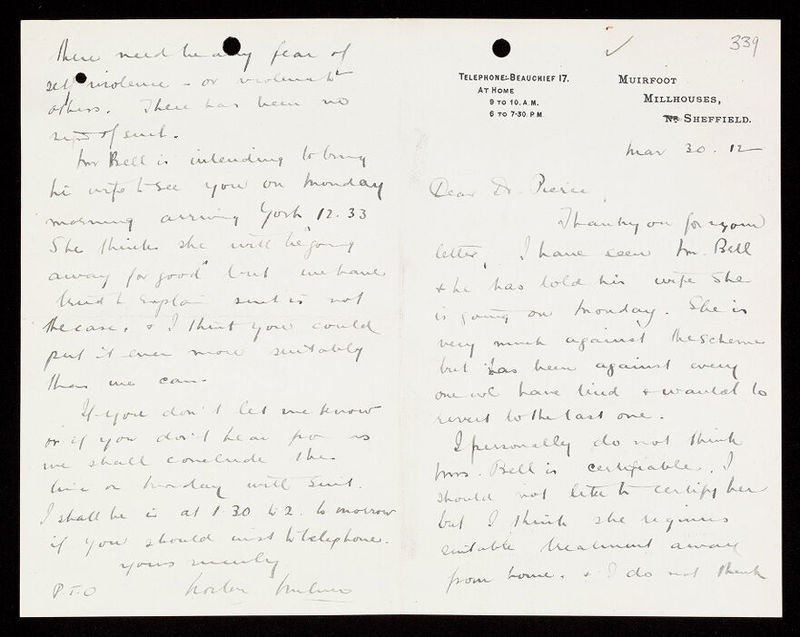 339
TELEPHONE: BEAUCHIEF 17.
AT HOME
9 TO 10. A.M.
6 TO 7-30. P.M.
MUIRFOOT
MILLHOUSES,
Nr SHEFFIELD.
Mar 30. 12
Dear Dr. Pierce
Thank you for your
letter, I have seen Mr. Bell
& he has told his wife she
is going on Monday. She is
very much against the scheme
but has been against every
one we have tried & wanted to
revert to the last one.
I personally do not think
Mrs. Bell is certifiable. I
should not like to certify her
but I think she requires
suitable treatment away
from home. & I do not think
there need be any fear of
self violence - or violence to
others. There has been no
sign of such.
Mr Bell is intending to bring
his wife to see you on Monday
morning arriving York 12.33
She thinks she will be "going
away for good" but we have
tried to explain such is not
the case. & I think you could
put it even more suitably
than we can.
If you don't let me know
or if you don't hear from us
we shall conclude the
time on Monday will suit.
I shall be in at 1.30 to 2. tomorrow
if you should wish to telephone.
Yours sincerely
P.T.O